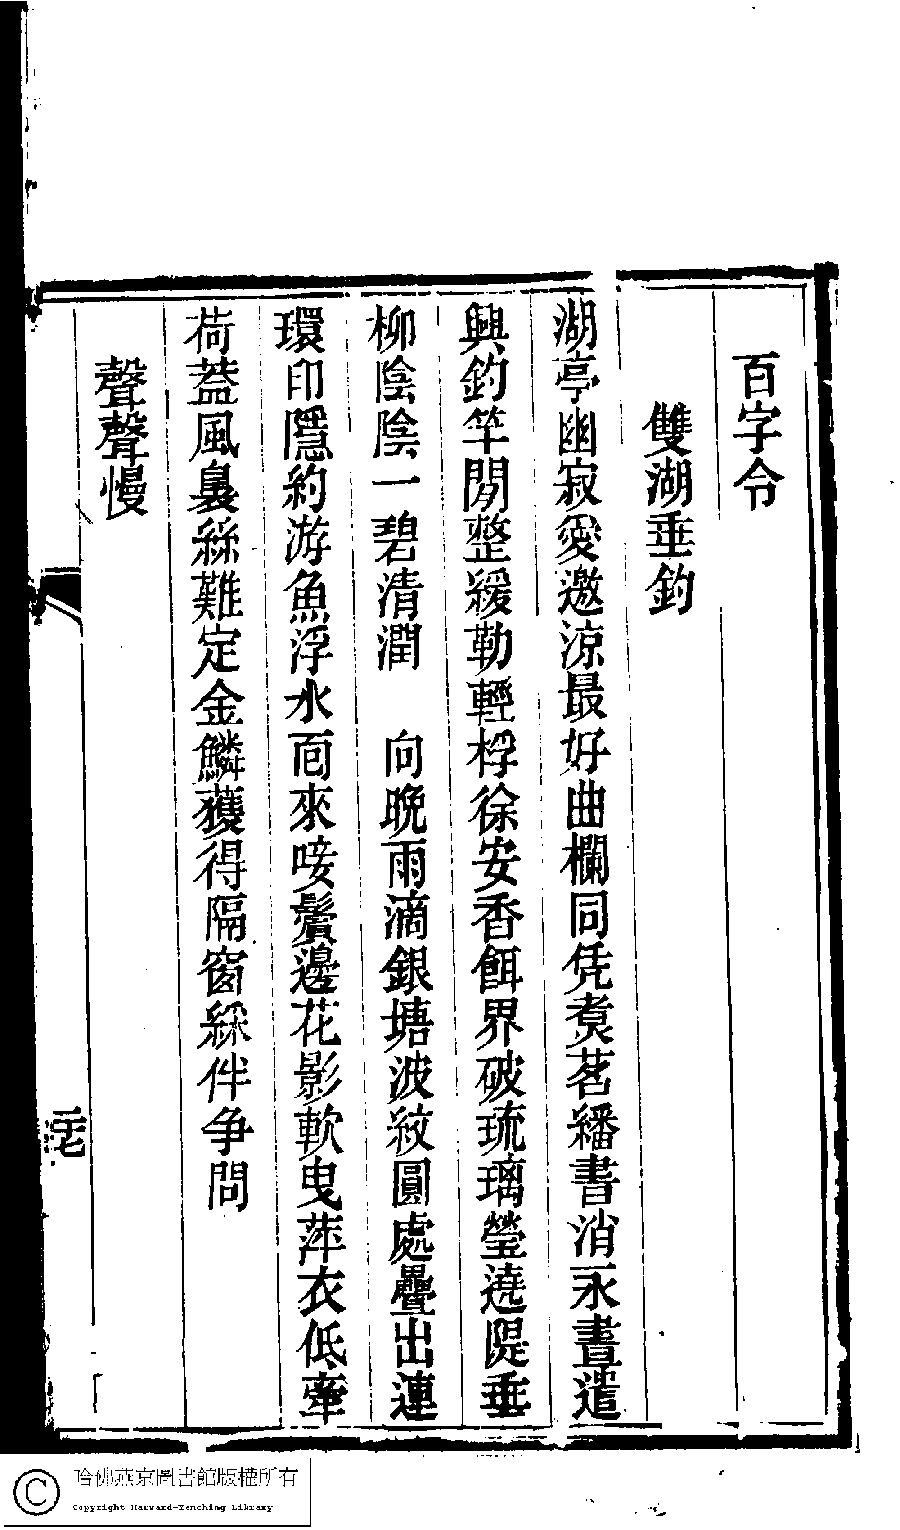 百字令
雙湖垂釣
湖亭幽寂愛邀涼最好曲欄同凭煑茗繙書消永晝遣
興釣竿閒整緩勒輕桴徐安香餌界破琉璃瑩遶隄垂
柳陰陰一碧清潤　向晚雨滴銀塘波紋圓處疊出連
環印隱約游魚浮水面來唼鬢邊花影軟曳萍衣低牽
荷葢風裊絲難定金鱗獲得隔窗綵伴争問
聲聲慢
哈佛燕京圖書館版權所有
Copyright Harvard-Yenching Library